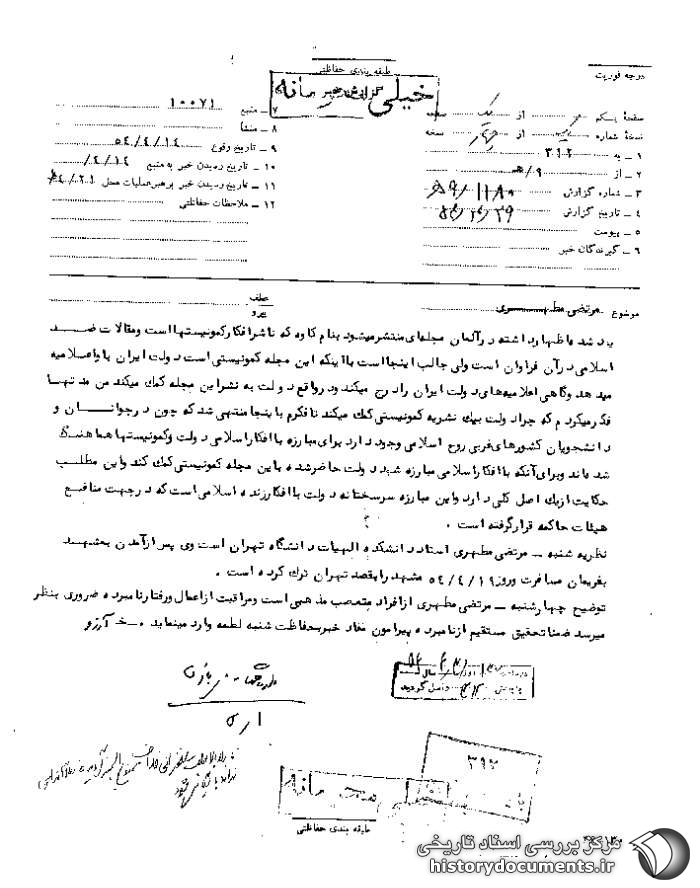 طبقه بندی حفاظتی
خیلی محرمانه
درجه فوریت
صفحهٔ یکم از یک صفحه
نسخهٔ شماره از چهار نسخه
۱ ــ به ۳۱۲
۲ ــ از ۹/هـ
۳ ــ شماره گزارش ۵۹/۱۱۸۰
۴ ــ تاریخ گزارش
۵ ــ پیوست
۶ ــ گیرندگان خبر
۷ ــ منبع ۱۰۰۷۱
۸ ــ منشأ
۹ ــ تاریخ وقوع ۵۴/۴/۱۴
۱۰ ــ تاریخ رسیدن خبر به منبع ۴/۱۴/
۱۱ ــ تاریخ رسیدن خبر برهبر عملیات محل ۵۴/۴/۲۱
۱۲ ــ ملاحظات حفاظتی
موضوع مرتضی مطهری
عطف
پیرو
یاد شده اظهار داشته در آلمان مجله‌ای منتشر میشود بنام کاوه که ناشر افکار کمونیستها است و مقالات ضد
اسلامی در آن فراوان است ولی جالب اینجا است با اینکه این مجله کمونیستی است دولت ایران با و اعلامیه
میدهد و گاهی اعلامیه‌های دولت ایران را درج میکند و در واقع دولت به نشر این مجله کمک میکند من مدتها
فکر میکردم که چرا دولت بیک نشریه کمونیستی کمک میکند تا فکرم باینجا منتهی شد که چون در جوانان و
دانشجویان کشورهای غربی روح اسلامی وجود دارد برای مبارزه با افکار اسلامی دولت و کمونیستها هماهنگ
شده‌اند و برای آنکه با افکار اسلامی مبارزه شود دولت حاضر شده باین مجله کمونیستی کمک کند و این مطلب
حکایت از یک اصل کلی دارد و این مبارزه سرسختانه دولت با افکار زنده اسلامی است که در جهت منافع
هیئات حاکمه قرار گرفته است .
نظریه شنبه ــ مرتضی مطهری استاد دانشکده الهیات دانشگاه تهران است وی پس از آمدن بمشهد
بفریمان مسافرت و روز ۵۴/۴/۱۹ مشهد را بقصد تهران ترک کرده است .
توضیح چهارشنبه ــ مرتضی مطهری از افراد متعصب مذهبی است و مراقبت از اعمال و رفتار نامبرده ضروری بنظر
میرسد ضمنا تحقیق مستقیم از نامبرده پیرامون مفاد خبر بحفاظت شنبه لطمه وارد مینماید ۰ــ خ آرزو
واصل گردید
۳۱۲
خیلی محرمانه
طبقه بندی حفاظتی
مرکز بررسی اسناد تاریخی
historydocuments.ir